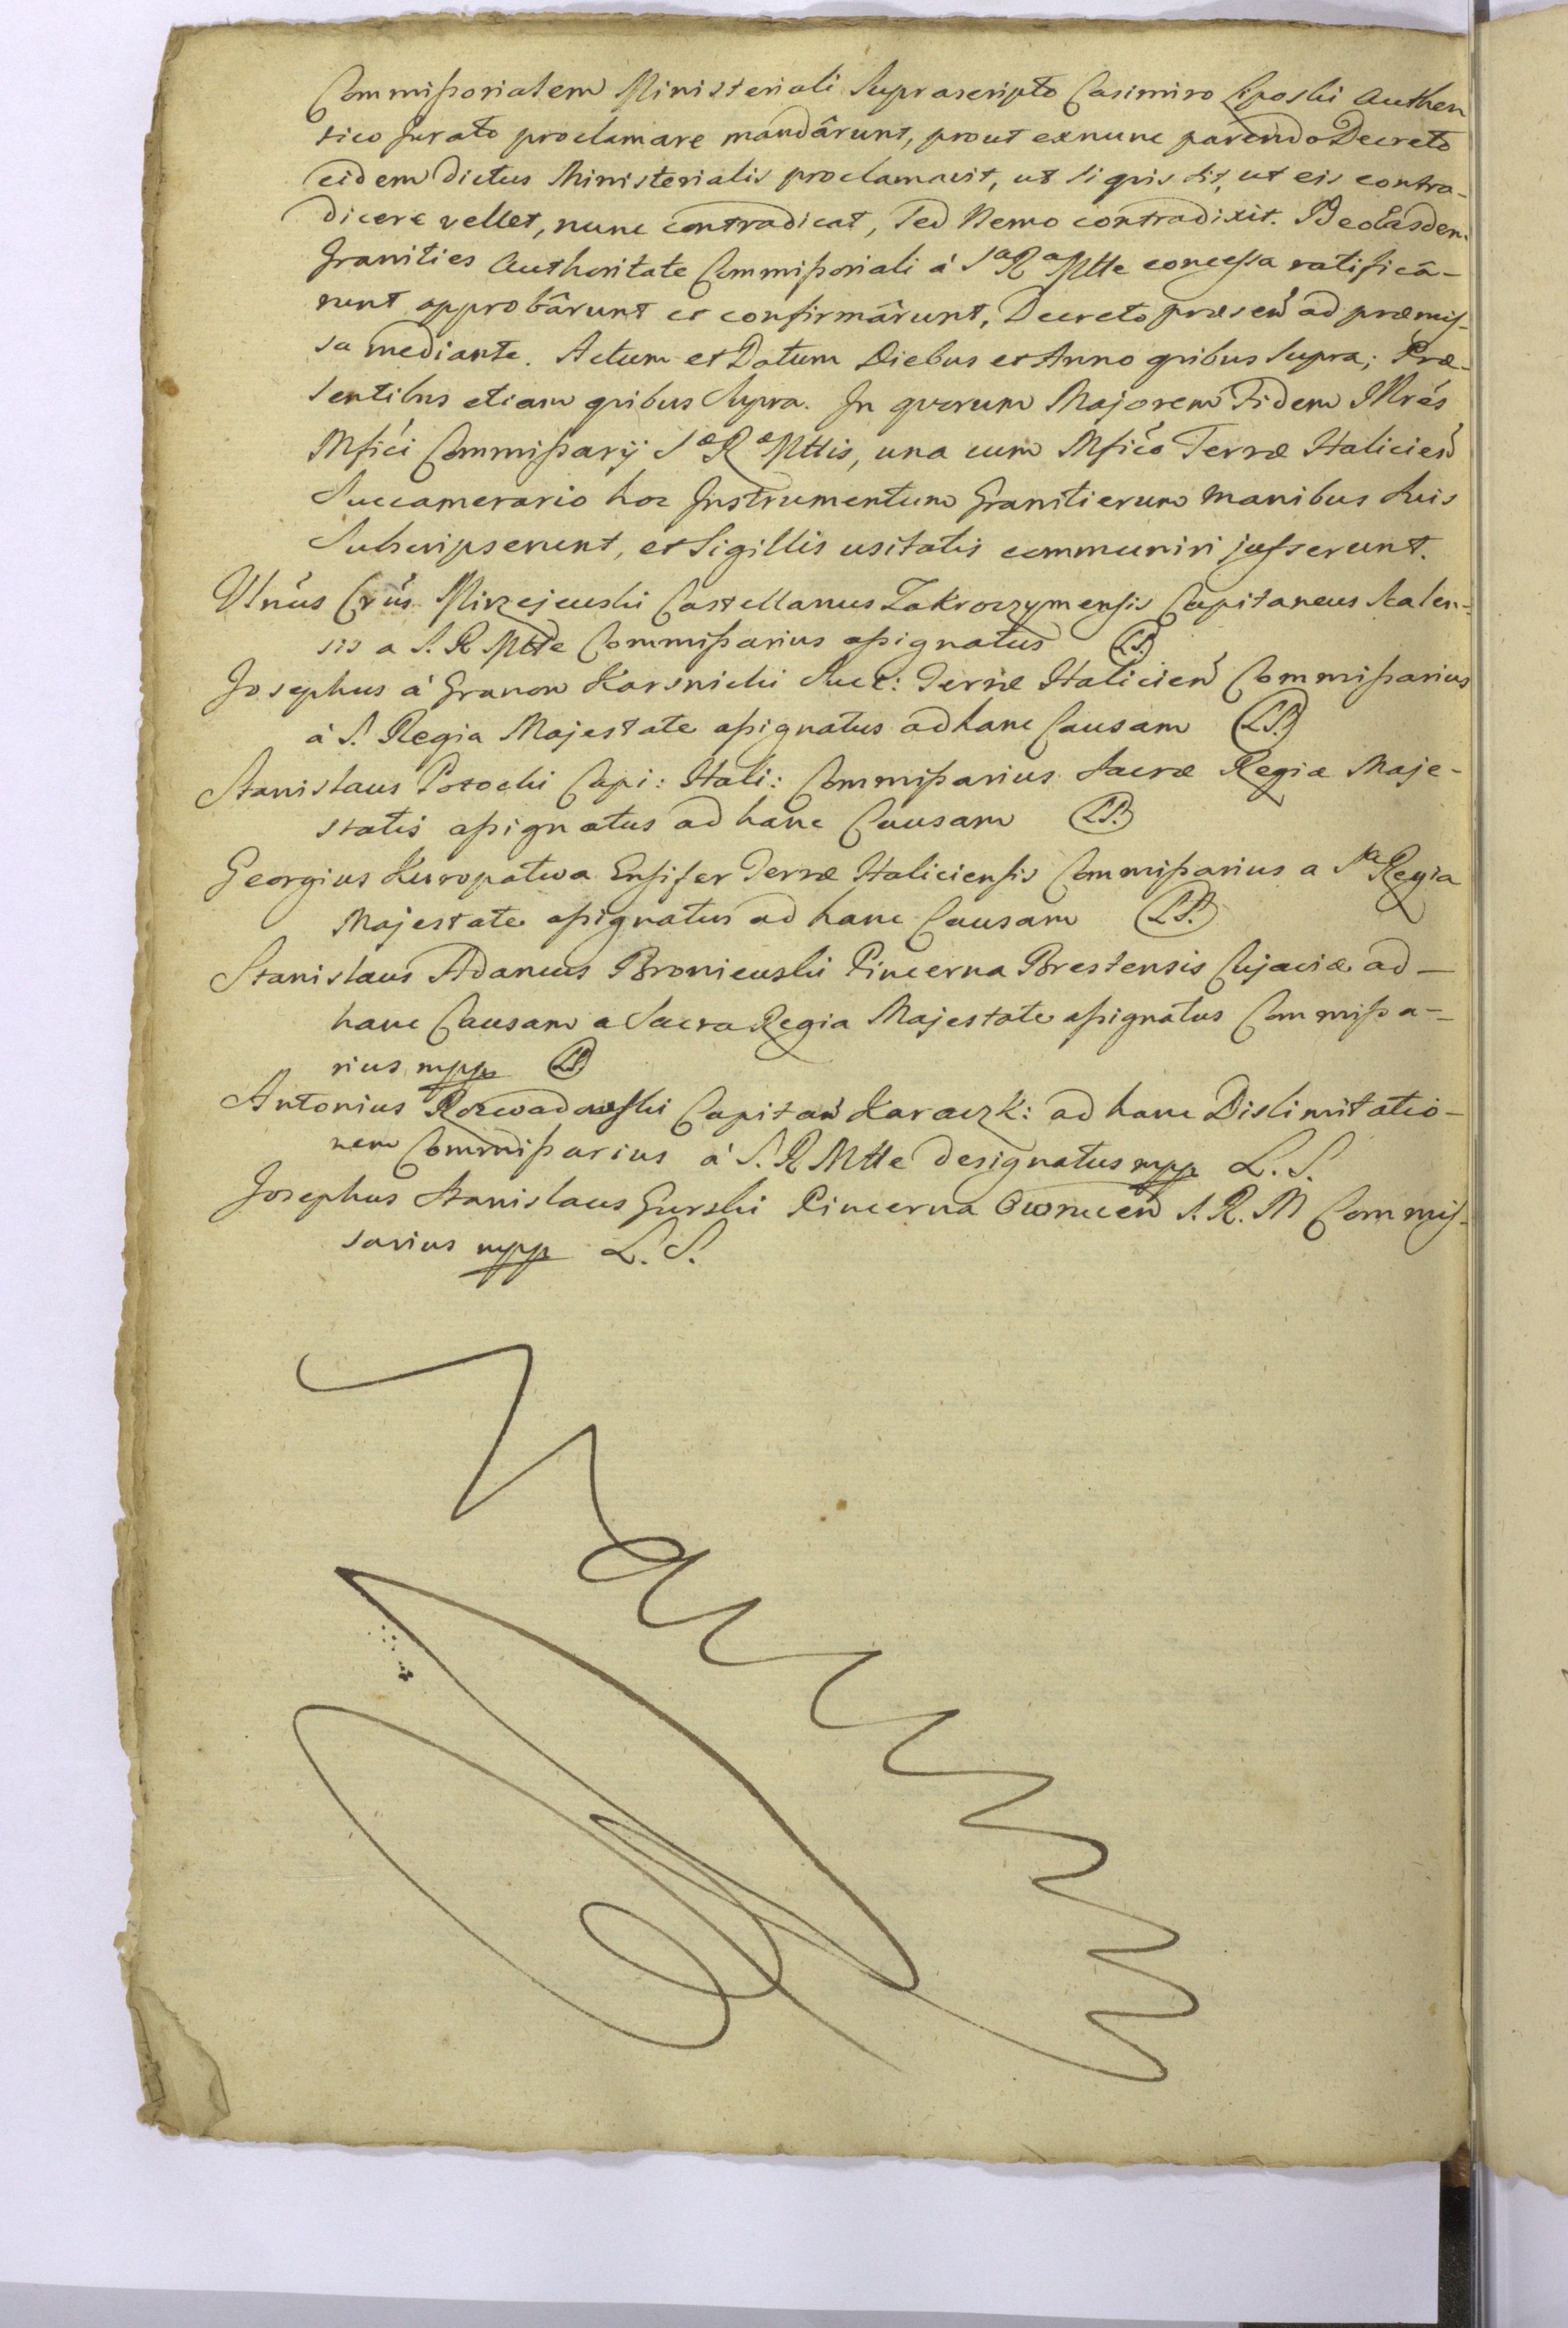 Commissorialem Ministeriali Suprascripto Casimiro Liposki Authen
tico Jurato proclamare mandârunt, prout exnunc parendo Decreto
eidem dictus Ministerialis proclamavit, ut siquis sit, ut eis contra-
dicere vellet, nunc contradicat, Sed Nemo contradixit. Ideo Easdem
Granities Authoritate Commissoriali á Sa Ra Mtte concessa ratificâ-
runt approbârunt et confirmârunt, Decreto præsen̄ ad præmis-
sa mediante. Actum et Datum Diebus et Anno quibus Supra; Præ-
sentibus etiam quibus Supra. In quorum Majorem Fidem Illrés
Mfići Commissarÿ Sæ Ræ Mttis, una cum Mfićo Terræ Halicień
Succamerario hoc Instrumentum Granitierum manibus Suis
Subscripserunt, et Sigillis usitatis communiri jusserunt.
Mirzejewski Castellanus Zakroczymensis Capitaneus Kalen-
sis a S. R Mtte Commissarius assignatus L.S.
Josephus á Granow Karsnicki Succ: Terræ Halicień Commissarius
á S. Regia Majestate assignatus ad hanc Causam L.S.
Stanislaus Potocki Capi: Hali: Commissarius Sacræ Regiæ Maje-
statis assignatus ad hanc Causam L.S.
Georgius Kuropatwa Ensifer Terræ Haliciensis Commissarius a Sa Regia
Majestate assignatus ad hanc Causam L.S.
Stanislaus Adamus Broniewski Pincerna Brestensis Cujaviæ ad-
hanc Causam a Sacra Regia Majestate assignatus Commissa-
rius mpp L.S.
Antonius Rozwadowski Capitań Karaczk: ad hanc Dislimitatio-
nem Commissarius á S. R Mtte designatus mpp L. S.
Josephus Stanislaus Gurski Pincerna Owrucen̄ S. R. M Commis-
sarius mpp L. S.